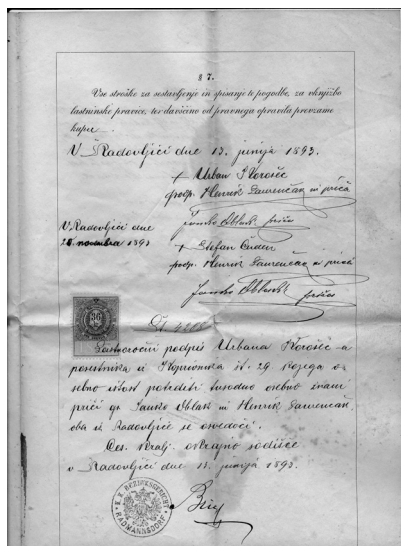 § 7.
Vse stroške za sestavljenje in spisanje te pogodbe, za vknjižbo
lastninske pravice, ter davščino od pravnega opravila prevzame
kupec.
V Radovljici dne 13. junija 1893.
+ Urban Korošec
podp. Henrik Lavrenčak in priča
Janko Oblak priča
V Radovljici dne
novembra 1893
+ Štefan
podp. Henrik Lavrenčak in priča
Janko Oblak priča
36
Lastnoročni podpis Urbana Korošec-a
posestnika iz št. 29 kojega o-
sebno istost potrditi tusodno osebno znani
priči gg. Janko Oblak in Henrik Lavrenčak,
oba iz Radovljice se svedoči.
Ces. kralj. okrajno sodišče
v Radovljici dne 13. junija 1893.
K. K. BEZIRKSGERICHT
RADMANNSDORF